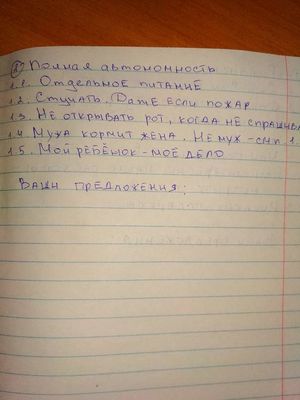 ① Полная автономность
1.1. Отдельное питание
1.2. Стучать. Даже если пожар
1.3. Не открывать рот, когда не спрашива
1.4 Мужа кормит жена. Не муж - см п. 1
1.5. Мой ребёнок - моё дело
Ваши предложения: